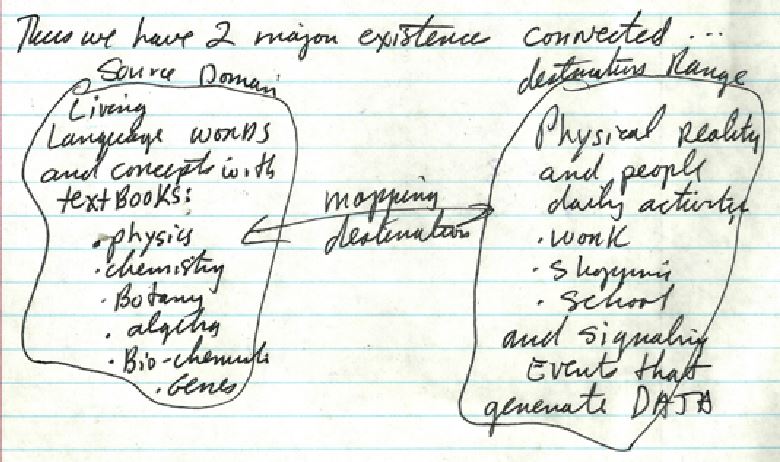 Thus we have 2 major existence connected ...
Source Domain
Living
Language words
and concepts with
textBooks:
• physics
• chemistry
• Botany
• algebra
• Bio-chemist
• Genes
mapping
destination
destination Range
Physical Reality
and people
daily activity
• work
• Shopping
• School
and signaling
Events that
generate DATA